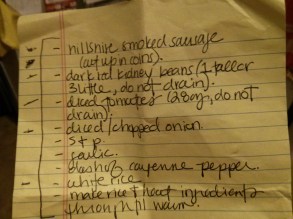 - hillshire smoked sausage
(cut up n coins).
- dark red kidney beans (1 taller
& little, do not drain).
- diced tomatoes (28oz, do not
drain).
- diced/chopped onion.
- s + p.
- garlic.
- dash of cayenne pepper.
- white rice
- make rice + heat ingredients
through til warm.